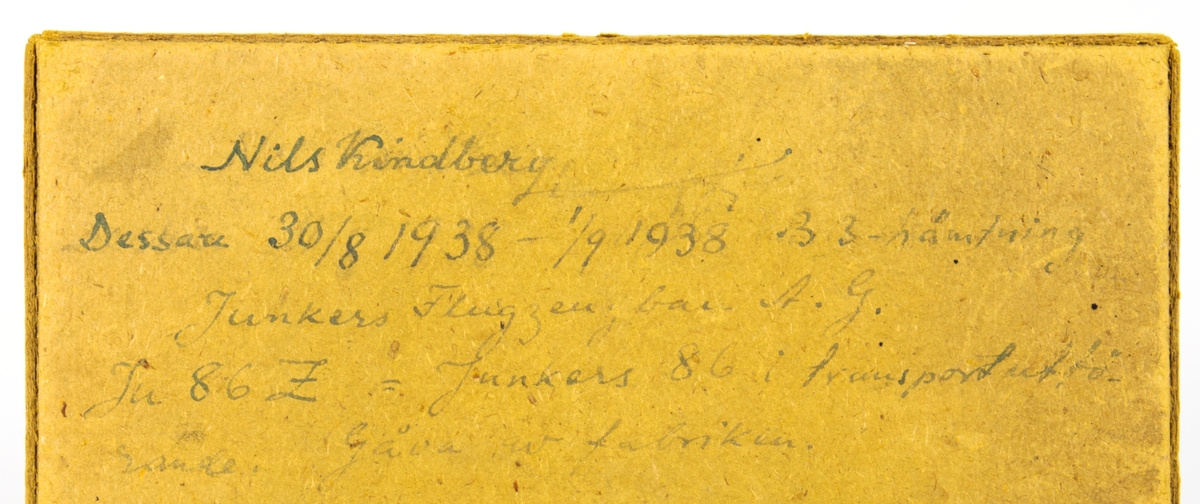 Nils Kindberg
Dessau 30/8 1938 – 1/9 1938 B 3-hämtning
Junkers Flugzeugbau A.G.
Ju 86 Z = Junkers 86 i transportutfö-
rande. Gåva av fabriken.